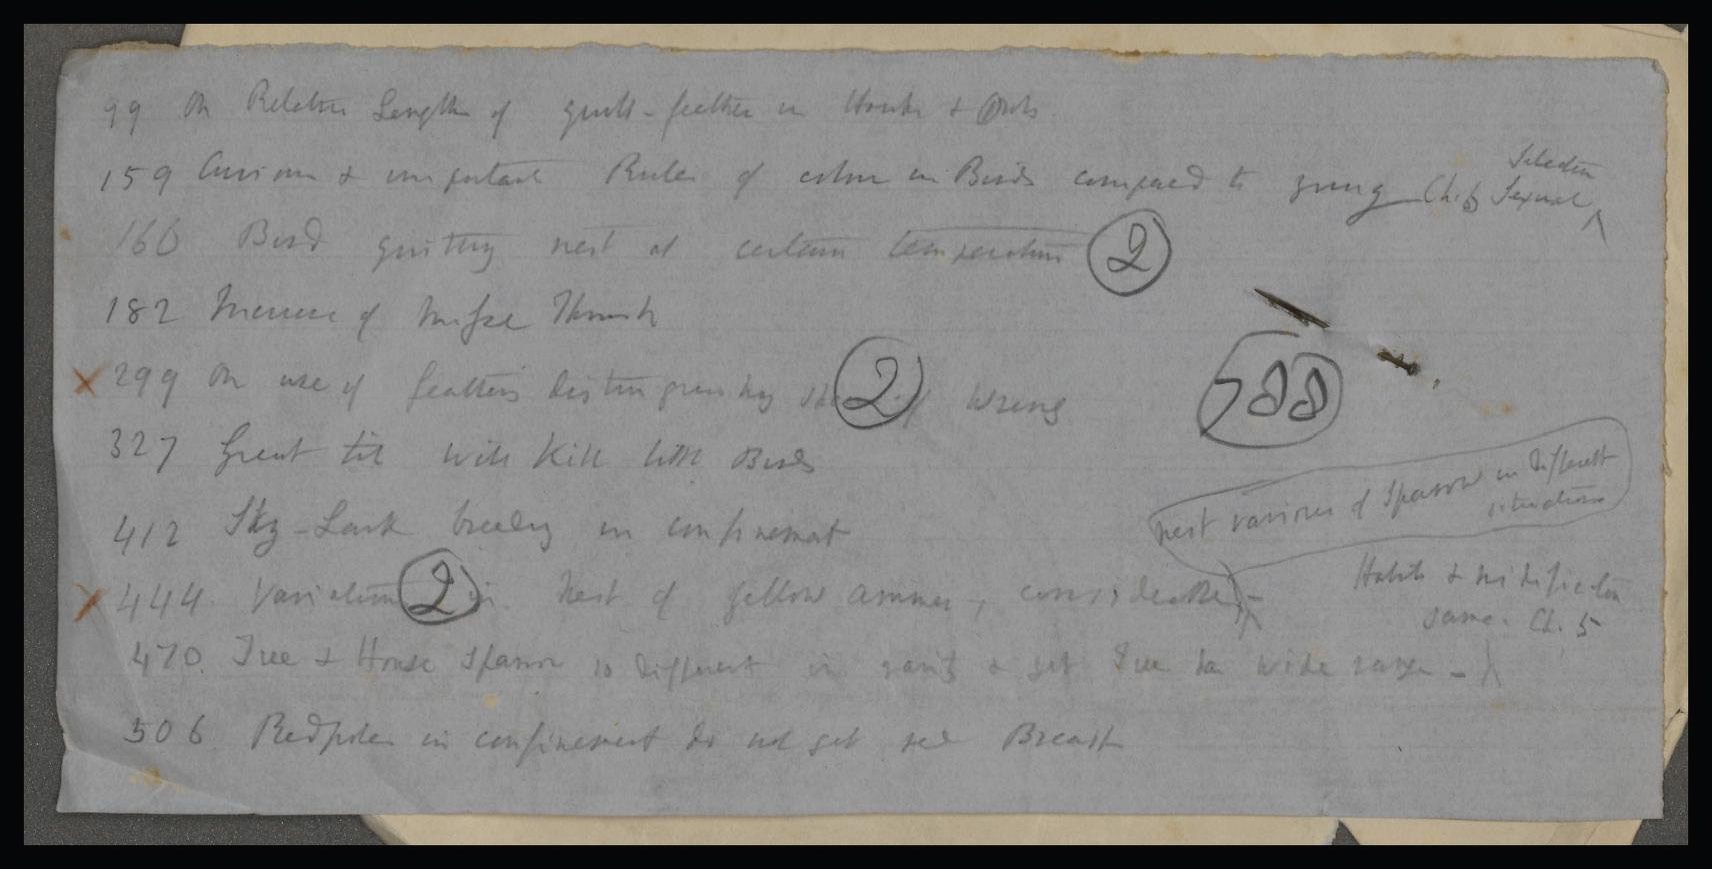 99 On Relative Length of quill-feather in Hawks & Owls
159 Curious & important Rules of colour in Birds compared to young Ch. 6 Sexual Selection
166 Bird quitting nest at certain temperature (2)
182 Increase of Missel Thrush
X 299 On use of feathers distinguishing (2) of wrens
327 Great tit will kill little Birds
412 Sky-Lark breeding in confinement
nest various of Sparrow in different situations
X 444. Variation (2) in Nest of yellow ammer, considerable -
Habits & nidification same. Ch. 5
470. Tree & House Sparrow so different in & yet Tree has wide range -
506 Redpoles in confinement do not get red Breast
788